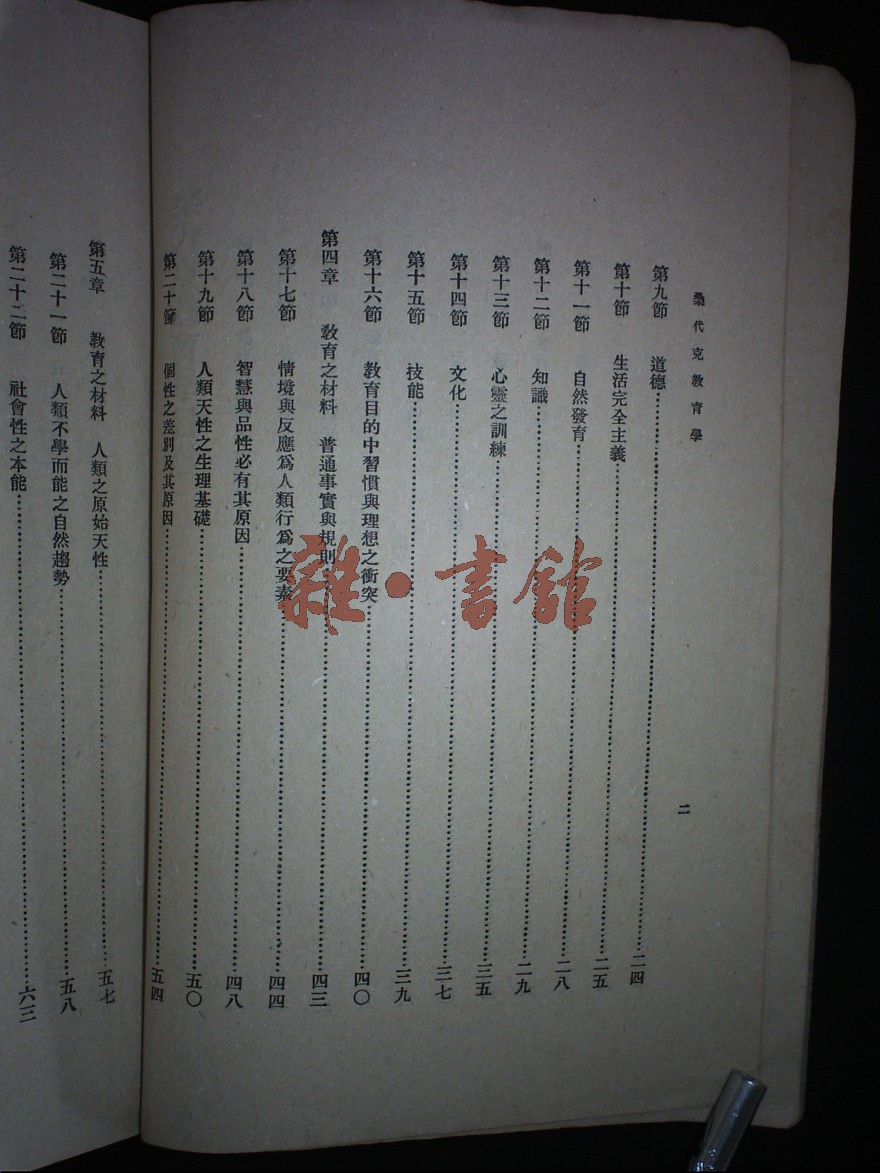 桑代克教育學
二
第九節 道德………二四
第十節 生活完全主義………二五
第十一節 自然發育………二八
第十二節 知識………二九
第十三節 心靈之訓練………三五
第十四節 文化………三七
第十五節 技能………三九
第十六節 教育目的中習慣與理想之衝突………四〇
第四章 教育之材料 普通事實與規則………四三
第十七節 情境與反應爲人類行爲之要素………四四
第十八節 智慧與品性必有其原因………四八
第十九節 人類天性之生理基礎………五〇
第二十節 個性之差別及其原因………五四
第五章 教育之材料 人類之原始天性………五七
第二十一節 人類不學而能之自然趨勢………五八
第二十二節 社會性之本能………六三
雜·書館